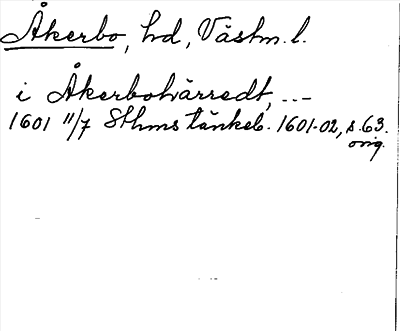 Åkerbo, hd, Västm. l.
i Åkerbohärredt, ...
1601 11/7 Sthms tänkeb. 1601-02, s. 63.
orig.